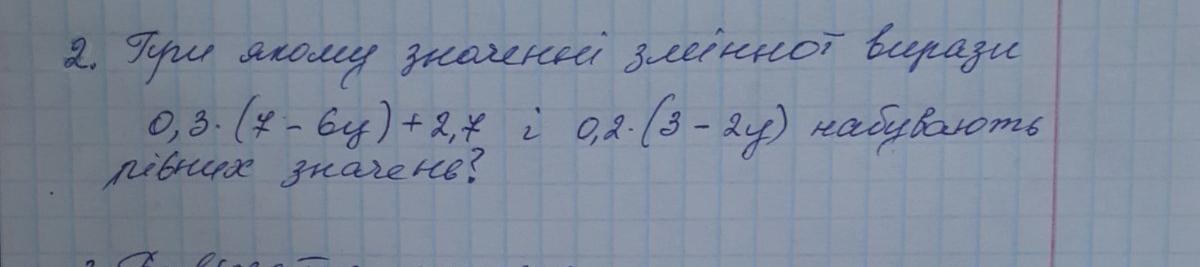 2. При якому значенні змінної вирази
0,3·(7 - 6y) + 2,7 і 0,2·(3 - 2y) набувають
рівних значень?